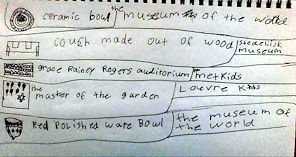 ceramic bowl the museum of the world
cough made out of wood stedelijk museum
grace Rainey Rogers auditorium metKids
the master of the garden Louvre Kids
Red polished ware Bowl the museum of the world